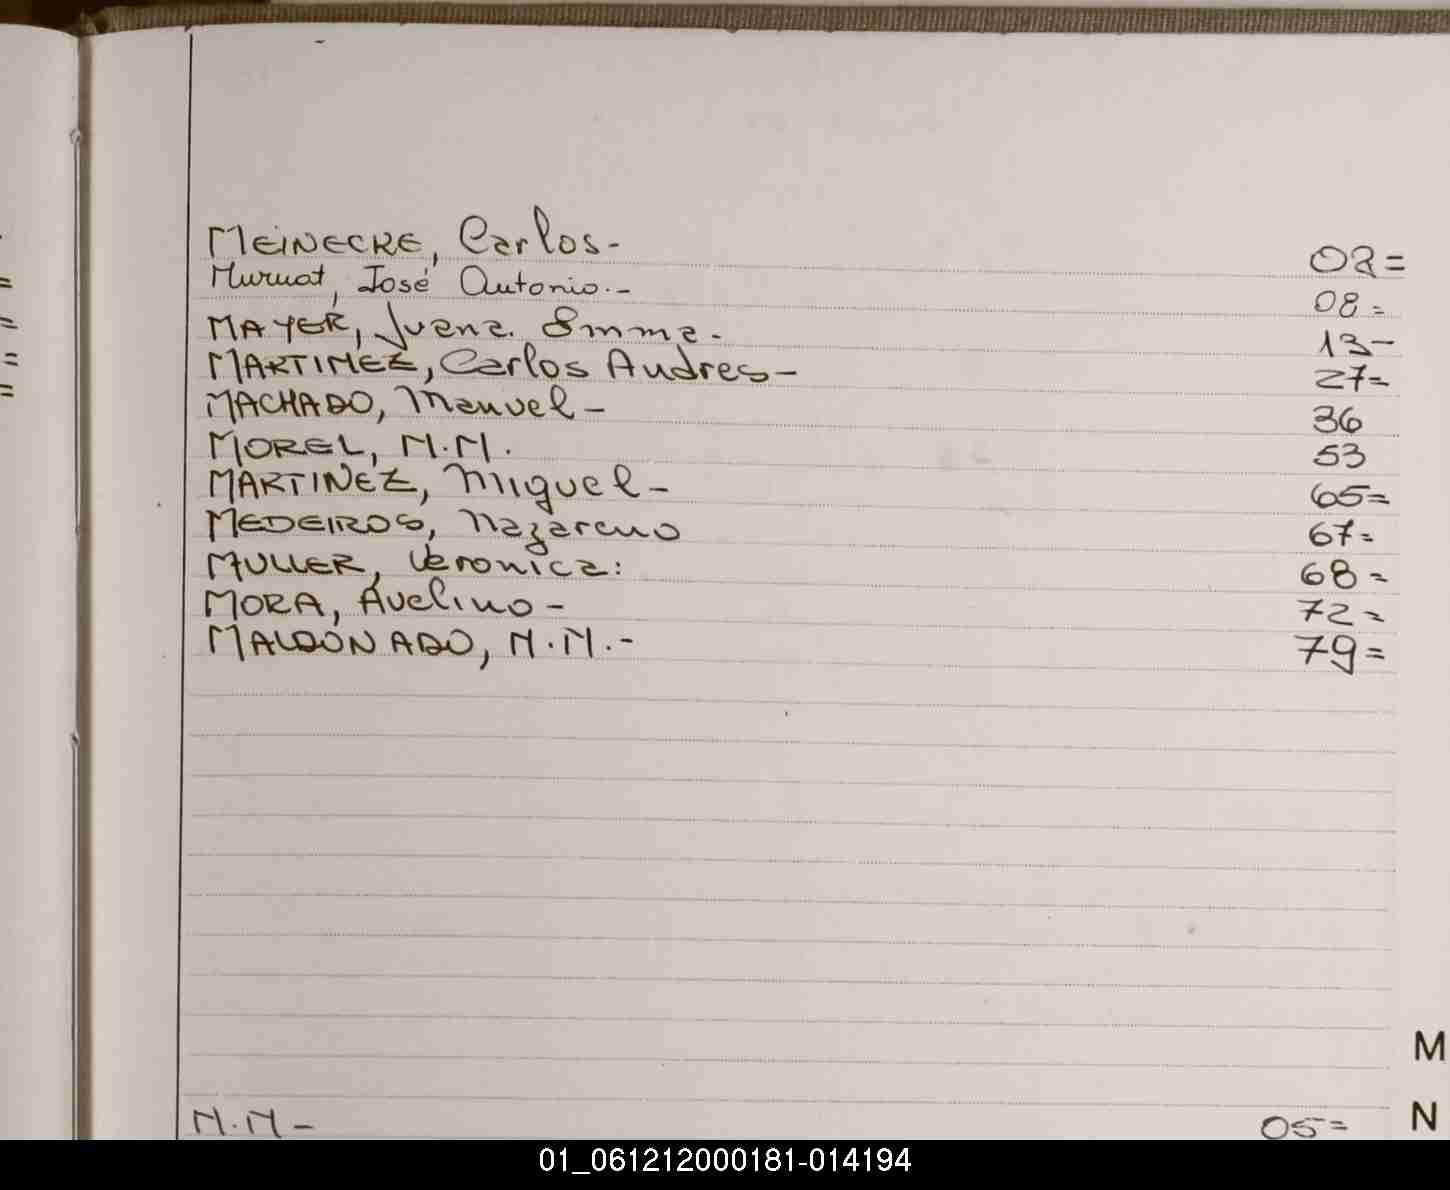 MEINECRE, Carlos- 02=
Muruat, José Antonio.- 08=
MAYER, Juana. Emma- 13-
MARTINEZ, Carlos Andres- 27=
MACHADO, Manuel- 36
MOREL, N.N. 53
MARTINEZ, Miguel- 65=
MEDEIROS, Nazareno 67=
MULLER, Veronica: 68=
MORA, Avelino- 72=
MALDONADO, N.N.- 79=
M
N.N- 05= N
01_061212000181-014194